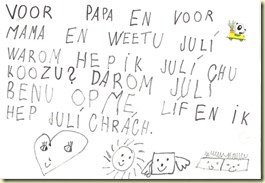 VOOR PAPA EN VOOR
MAMA EN WEETU JULÍ
WAROM HEP IK JULÍ CHU
KOOZU? DAROM JULI
BENU OP ME LIF EN IK
HEP JULI CHRÁCH.